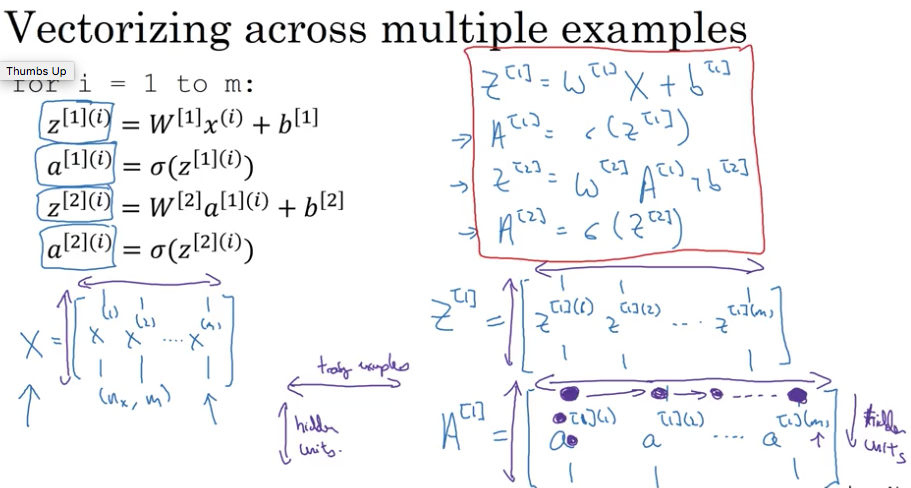 Vectorizing across multiple examples
Thumbs Up
for i = 1 to m:
z[1](i) = W[1]x(i) + b[1]
a[1](i) = σ(z[1](i))
z[2](i) = W[2]a[1](i) + b[2]
a[2](i) = σ(z[2](i))
Z[1] = W[1] X + b[1]
→ A[1] = σ(Z[1])
→ Z[2] = W[2] A[1] + b[2]
→ A[2] = σ(Z[2])
X = [ x(1) x(2) .... x(m) ]
(nx, m)
Z[1] = [ z[1](1) z[1](2) ... z[1](m) ]
examples
hidden
units.
A[1] = [ a[1](1) a[1](2) .... a[1](m) ]
hidden
units